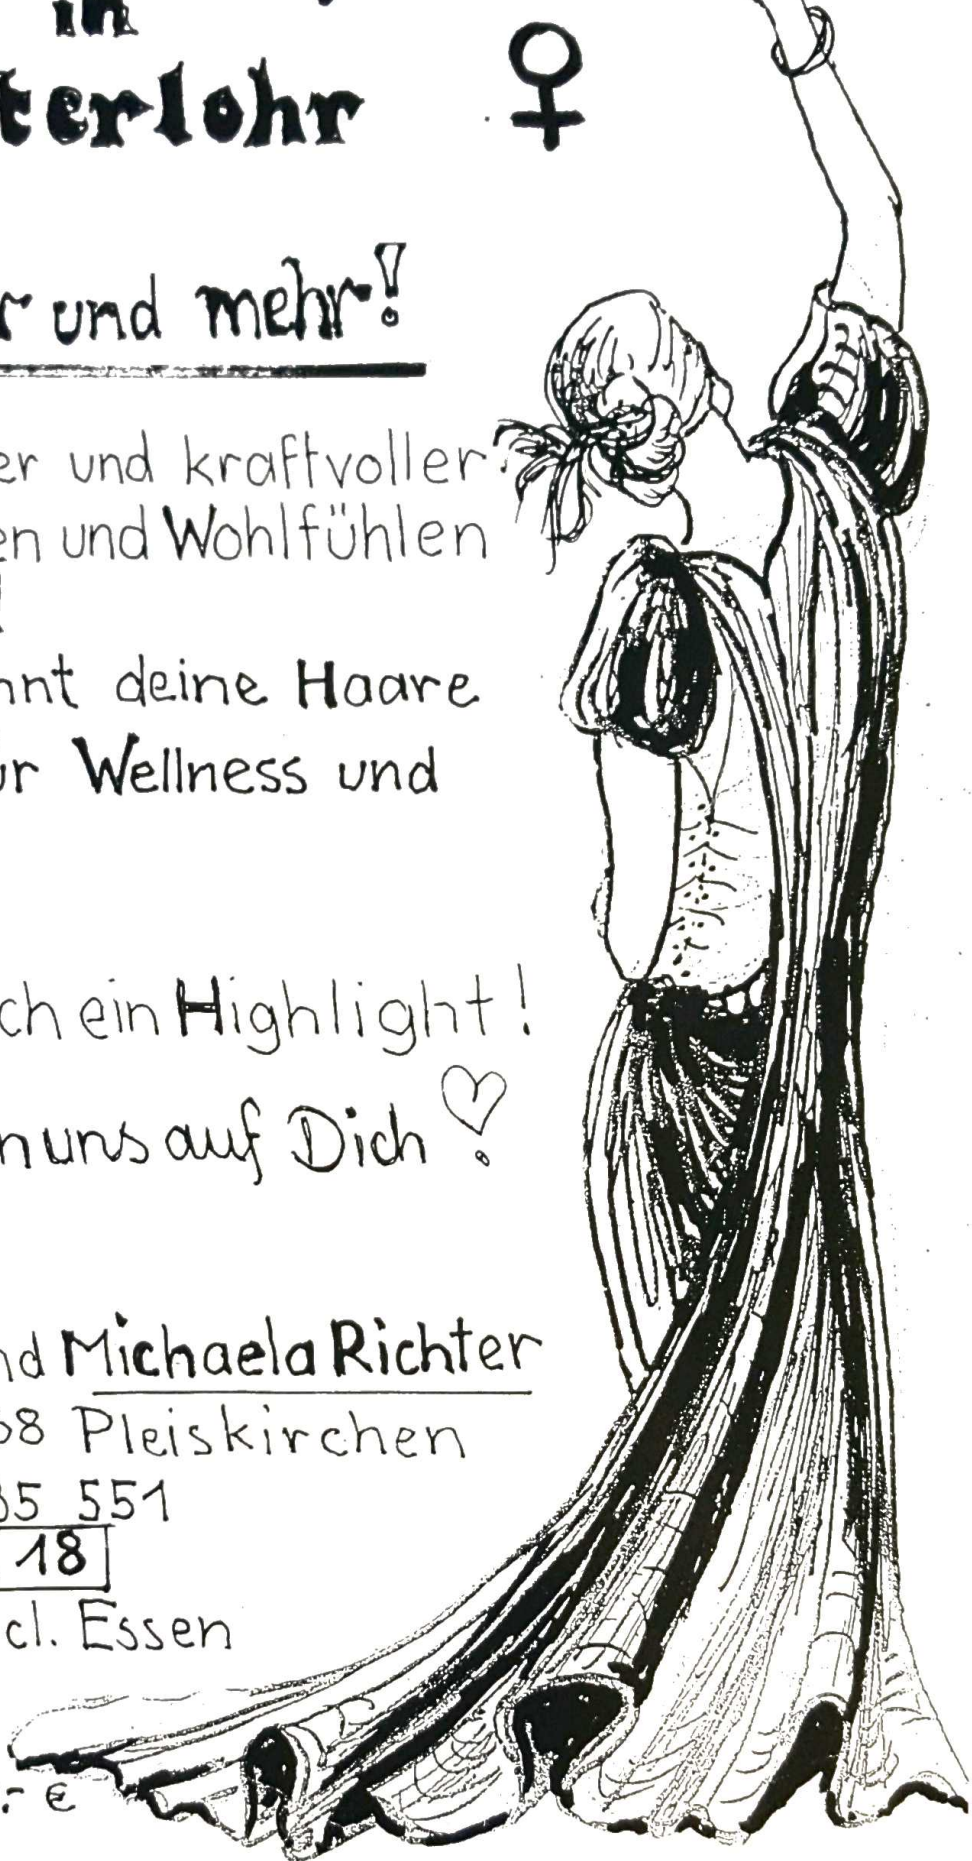 in
terlohr
r und mehr!
er und kraftvoller
en und Wohlfühlen
nnt deine Haare
ur Wellness und
ch ein Highlight!
n uns auf Dich !
nd Michaela Richter
68 Pleiskirchen
35 551
18
cl. Essen
.- €